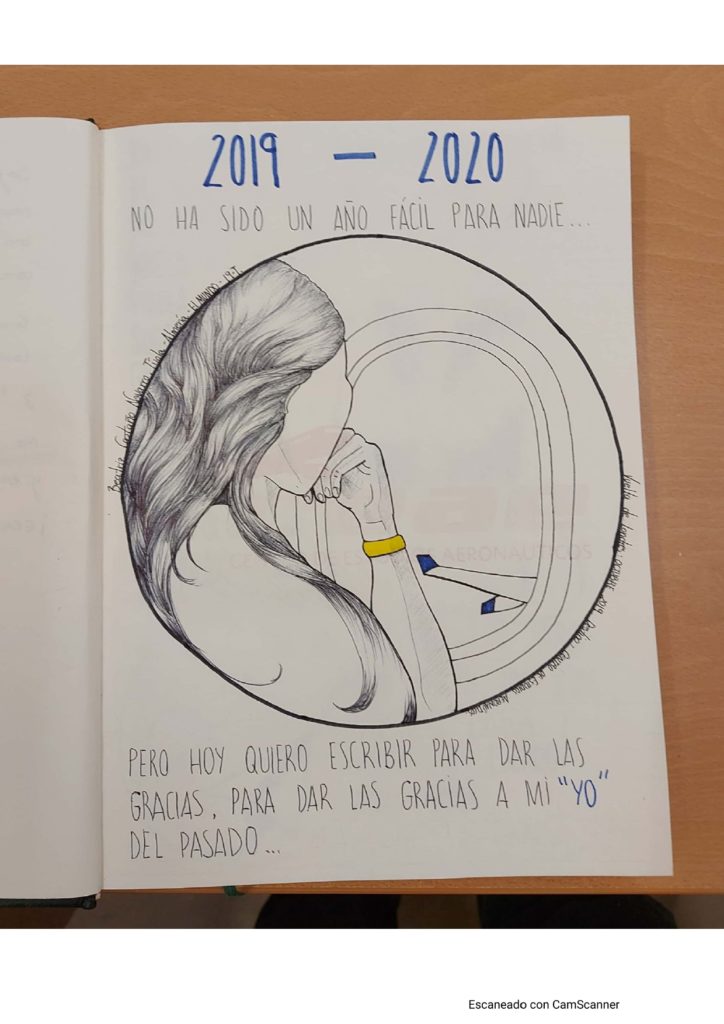 2019 - 2020
NO HA SIDO UN AÑO FÁCIL PARA NADIE...
Beatriz Navarro Almería - EL MUNDO - 19-I
Vuelta de Londres: OCTUBRE 2019. Destino: CENTRO DE ESTUDIOS AERONÁUTICOS
CENTRO DE ESTUDIOS AERONÁUTICOS
PERO HOY QUIERO ESCRIBIR PARA DAR LAS
GRACIAS, PARA DAR LAS GRACIAS A MI "YO"
DEL PASADO...
Escaneado con CamScanner